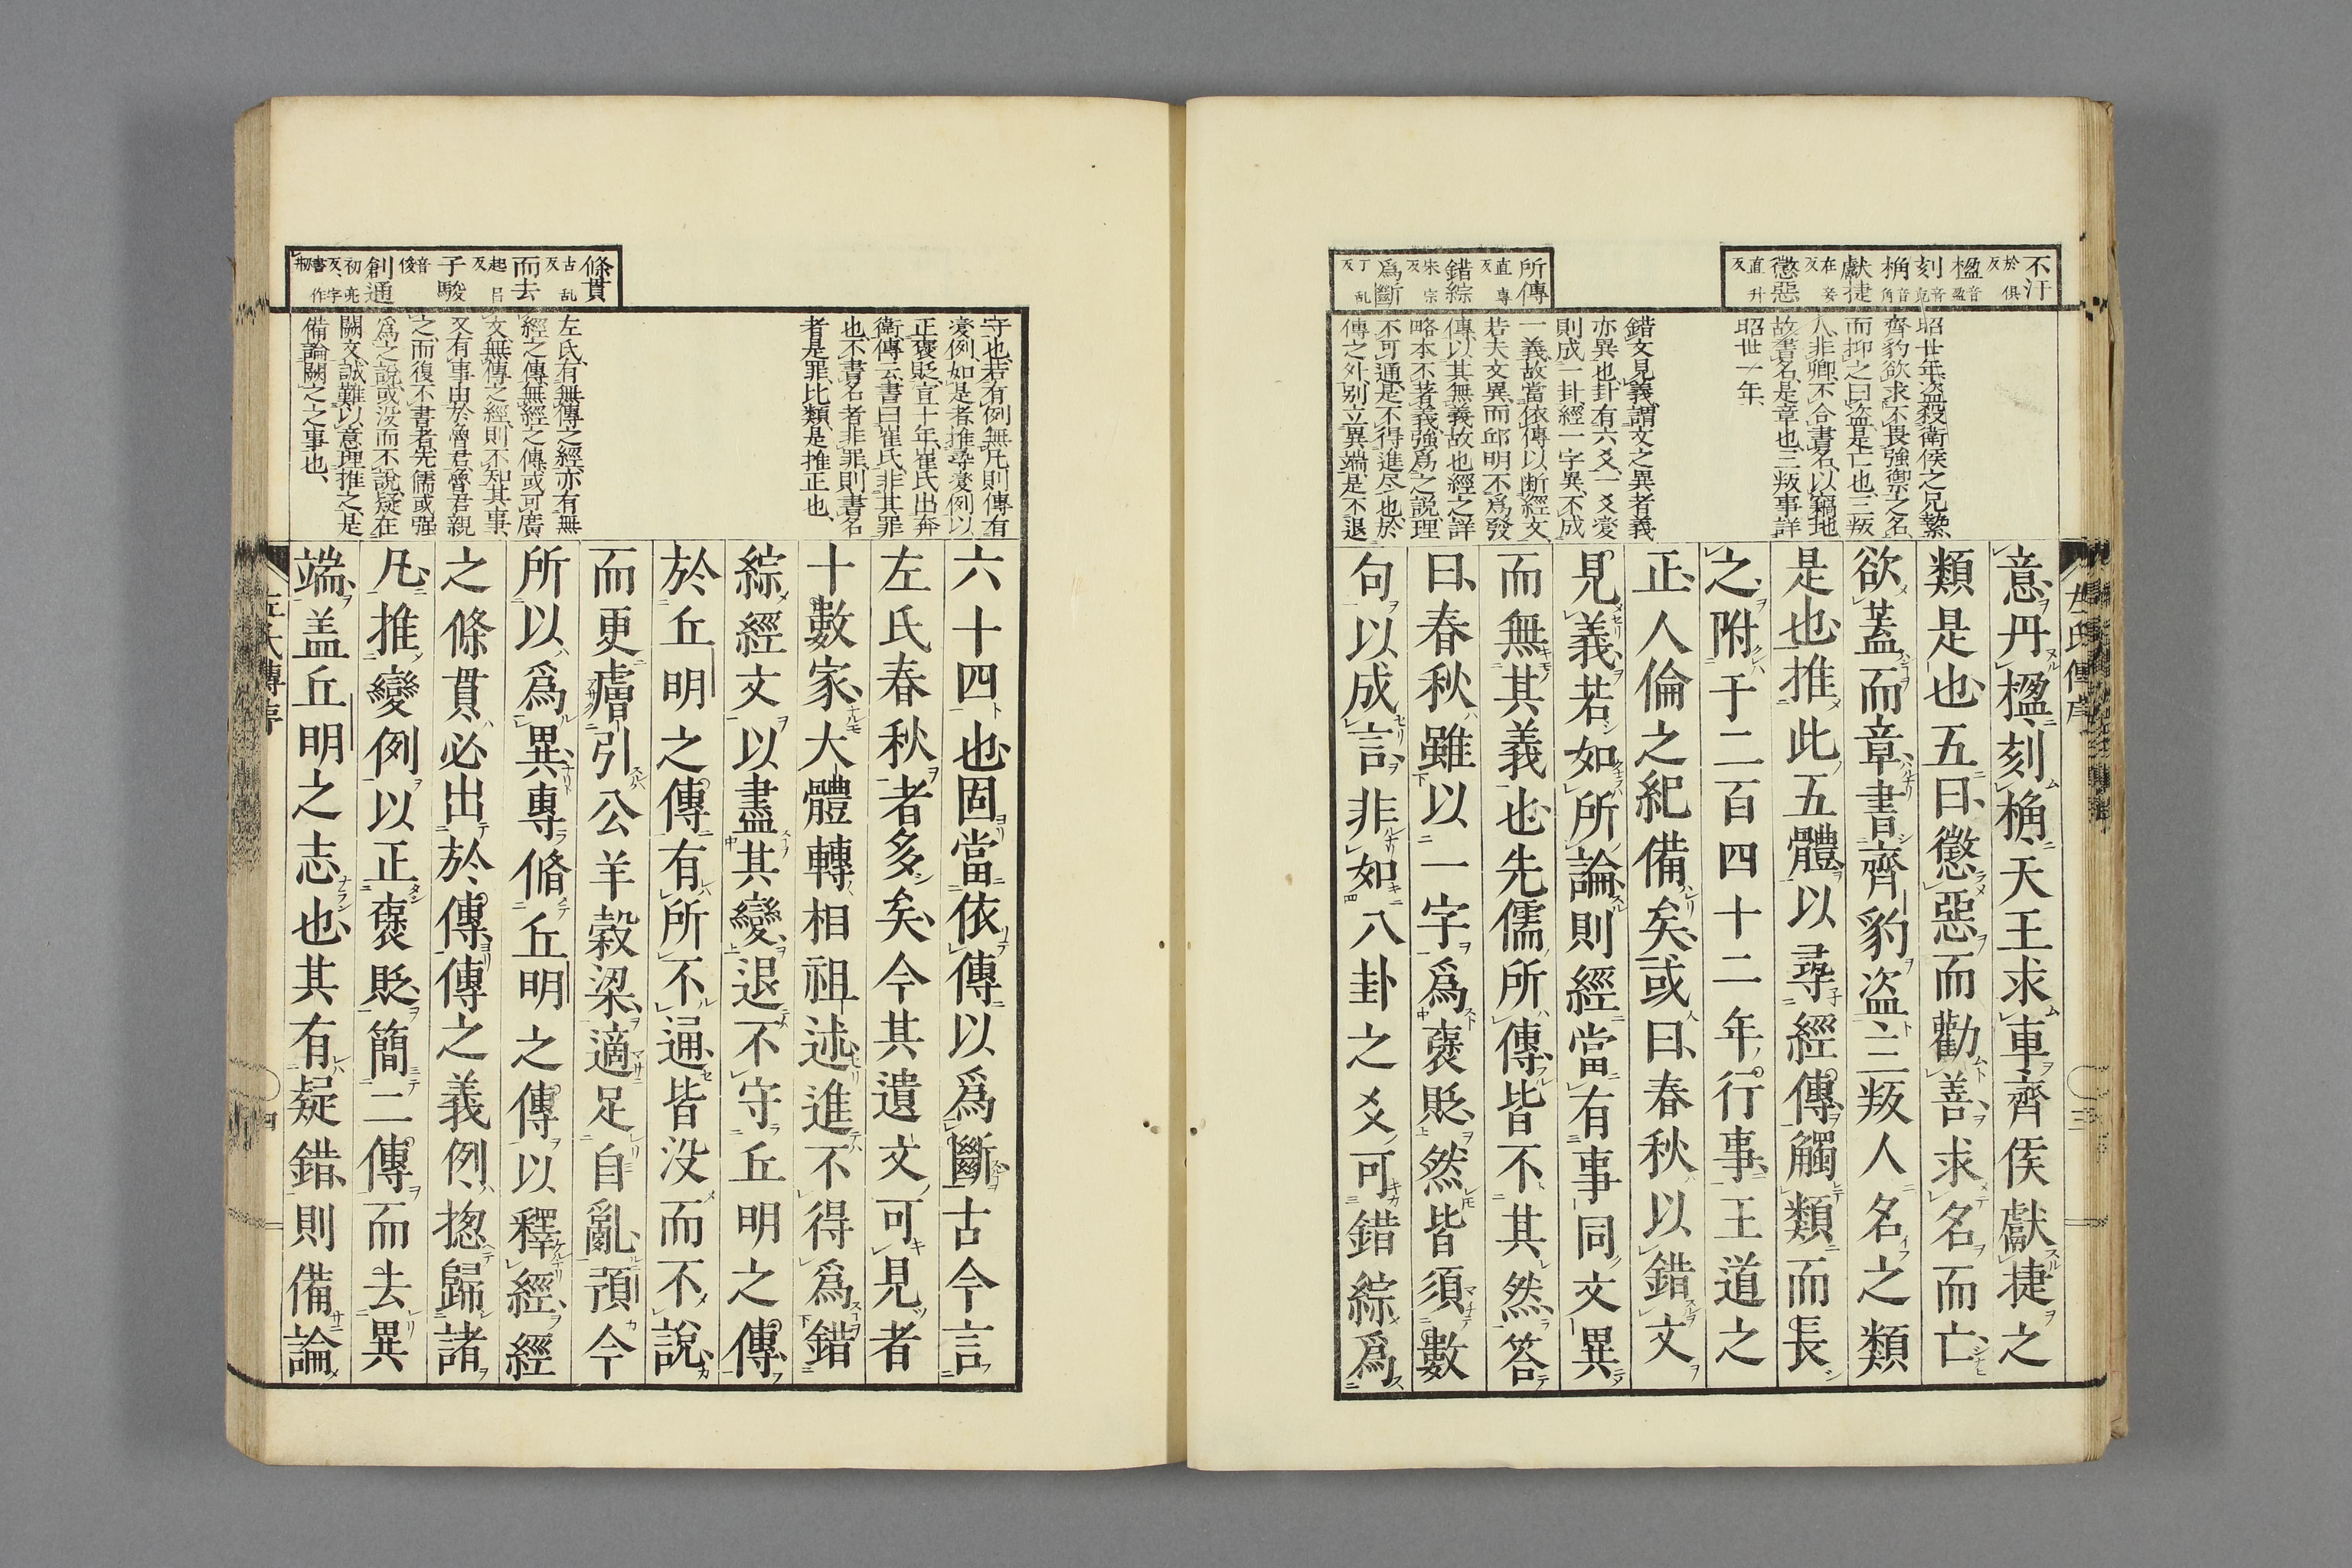 不汙 於俱反
楹 音盈
刻
桷 音角
獻捷 在妾反
懲惡 直升反
所傳 直專反
錯綜 朱宗反
爲斷 丁乱反
昭廿年盗殺衛侯之兄縶
齊豹欲求不畏強禦之名
而抑之曰盗是亡也三叛
人非卿不合書名以竊地
故書名是章也三叛事詳
昭世一年
錯文見義謂文之異者義
亦異也卦有六爻一爻変
則成一卦經一字異不成
一義故當依傳以断經文
若夫文異而邱明不爲發
傳以其無義故也經之詳
略本不著義強爲之説理
不可通是不得進尽也於
傳之外別立異端是不退
意丹楹刻桷天王求車齊侯獻捷之
類是也五曰懲惡而勸善求名而亡
欲蓋而章書齊豹盗三叛人名之類
是也推此五體以尋經傳觸類而長
之附于二百四十二年行事王道之
正人倫之紀備矣或曰春秋以錯文
見義若如所論則經當有事同文異
而無其義也先儒所傳皆不其然答
曰春秋雖以一字爲襃貶然皆須數
句以成言非如八卦之爻可錯綜爲
左氏傳序
三
條貫 古乱反
而去 起呂反
子駿 音俊
創通 初亮反字書作剏
守也若有例無凡則傳有
変例如是者推尋変例以
正褒貶宣十年崔氏出奔
衛傳云書曰崔氏非其罪
也不書名者非罪則書名
者是罪比類是推正也
左氏有無傳之經亦有無
經之傳無經之傳或可廣
文無傳之經則不知其事
又有事由於魯君魯君親
之而復不書者先儒或强
爲之說或没而不說疑在
闕文誠難以意理推之是
備論闕之之事也
六十四也固當依傳以爲斷古今言
左氏春秋者多矣今其遺文可見者
十數家大體轉相祖述進不得爲錯
綜經文以盡其變退不守丘明之傳
於丘明之傳有所不通皆没而不說
而更膚引公羊榖梁適足自亂預今
所以爲異專脩丘明之傳以釋經經
之條貫必出於傳傳之義例揔歸諸
凡推變例以正襃貶簡二傳而去異
端盖丘明之志也其有疑錯則備論
左氏傳序
四